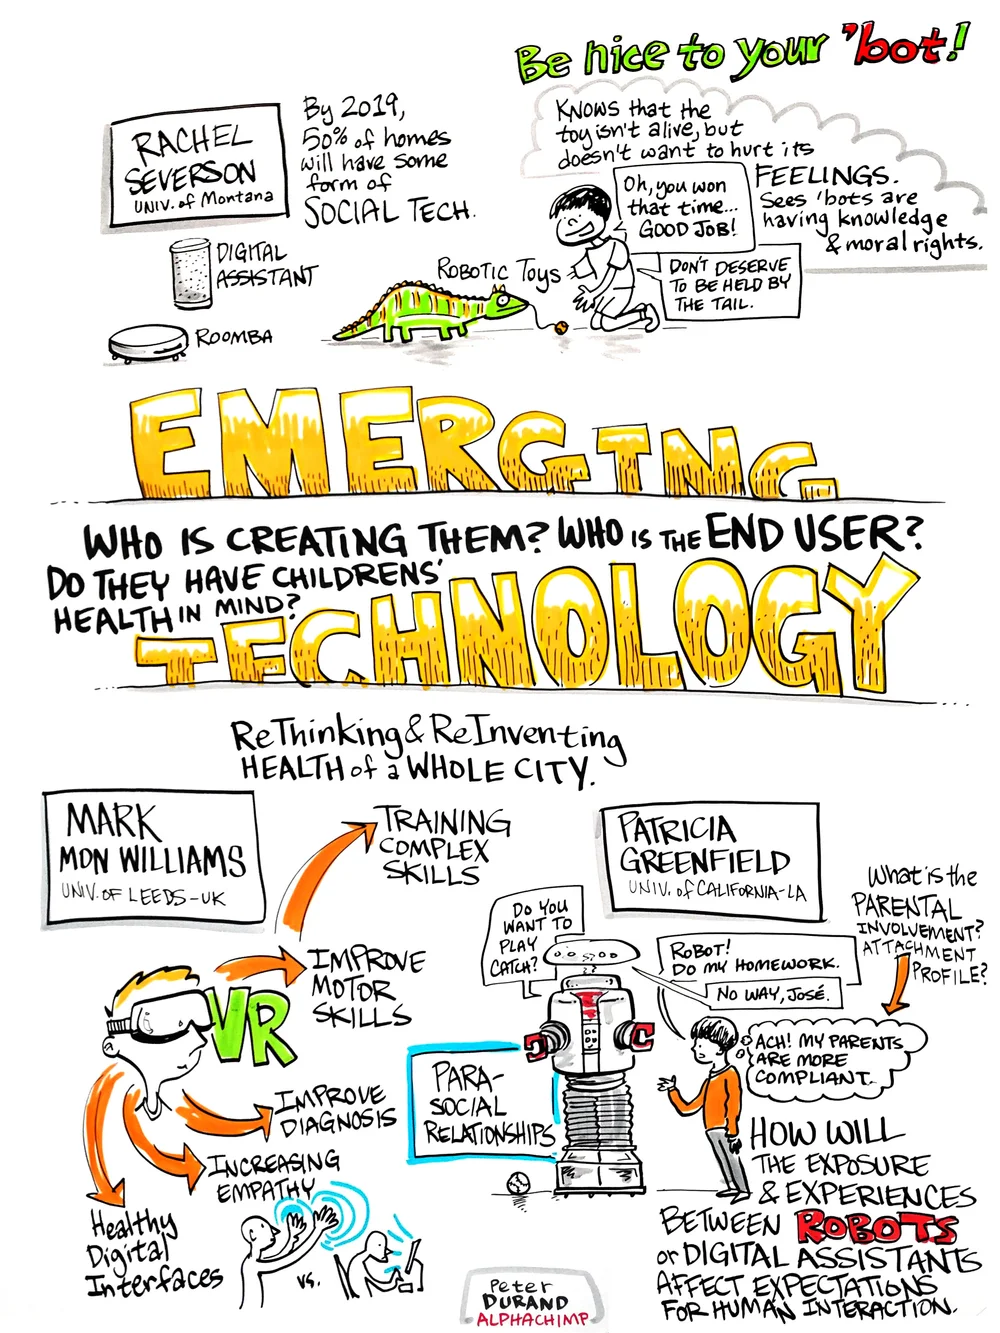 Be nice to your 'bot!
RACHEL
SEVERSON
UNIV. of Montana
By 2019,
50% of homes
will have some
form of
SOCIAL TECH.
KNOWS that the
toy isn't alive, but
doesn't want to hurt its
FEELINGS.
Sees 'bots are
having knowledge
& moral rights.
Oh, you won
that time...
GOOD JOB!
DON'T DESERVE
TO BE HELD BY
THE TAIL.
DIGITAL
ASSISTANT
ROBOTIC TOYS
ROOMBA
EMERGING
WHO IS CREATING THEM? WHO IS THE END USER?
DO THEY HAVE CHILDRENS'
HEALTH IN MIND?
TECHNOLOGY
ReThinking & ReInventing
HEALTH of a WHOLE CITY.
MARK
MON WILLIAMS
UNIV. OF LEEDS-UK
TRAINING
COMPLEX
SKILLS
IMPROVE
MOTOR
SKILLS
VR
IMPROVE
DIAGNOSIS
INCREASING
EMPATHY
Healthy
Digital
Interfaces
vs.
PATRICIA
GREENFIELD
UNIV. of CALIFORNIA-LA
What is the
PARENTAL
INVOLVEMENT?
ATTACHMENT
PROFILE?
DO YOU
WANT TO
PLAY
CATCH?
ROBOT!
DO MY HOMEWORK.
NO WAY, JOSÉ.
ACH! MY PARENTS
ARE MORE
COMPLIANT.
PARA-
SOCIAL
RELATIONSHIPS
HOW WILL
THE EXPOSURE
& EXPERIENCES
BETWEEN ROBOTS
or DIGITAL ASSISTANTS
AFFECT EXPECTATIONS
FOR HUMAN INTERACTION.
Peter
DURAND
ALPHACHIMP